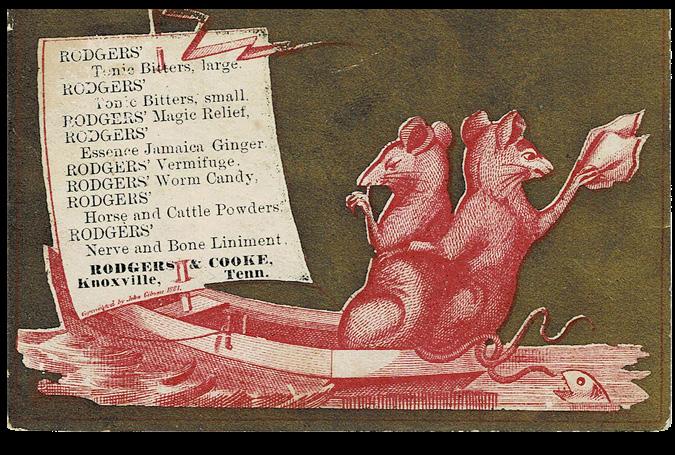 RODGERS'
Tonic Bitters, large.
RODGERS'
Tonic Bitters, small.
RODGERS' Magic Relief,
RODGERS'
Essence Jamaica Ginger.
RODGERS' Vermifuge,
RODGERS' Worm Candy,
RODGERS'
Horse and Cattle Powders.
RODGERS'
Nerve and Bone Liniment.
RODGERS & COOKE,
Knoxville, Tenn.
Copyrighted by John Gibson 1881.